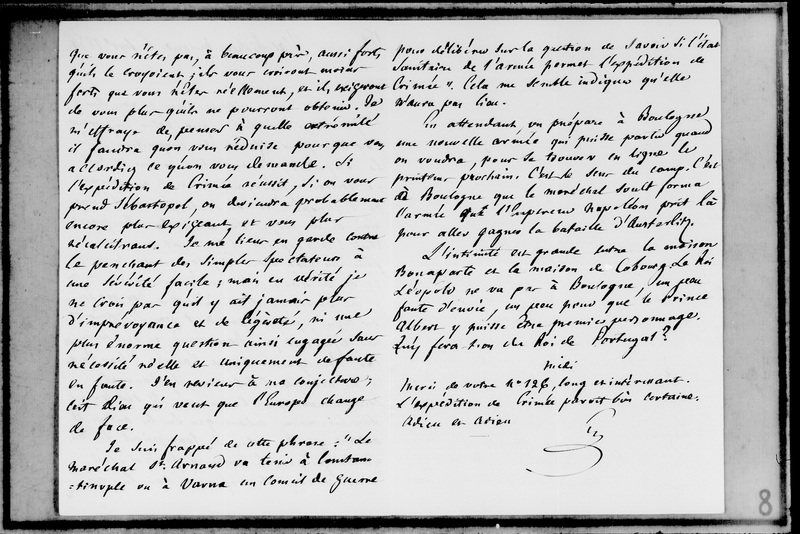 que vous n'êtes pas, à beaucoup près, aussi forts
qu'ils le croyoient ; ils vous croiront moins
forts que vous n'êtes réellement, et ils exigeront
de vous plus qu'ils ne pourront obtenir. Je
m'effraye de penser à quelle extrémité
il faudra qu'on vous réduise pour que vous
accordiez ce qu'on vous demande. Si
l'expédition de Crimée réussit, si on vous
prend Sébastopol, on deviendra probablement
encore plus exigeant, et vous plus
récalcitrans. Je me tiens en garde contre
le penchant des simples spectateurs à
une sévérité facile ; mais en vérité je
ne crois pas qu'il y ait jamais plus
d'imprévoyance et de légèreté, ni une
plus énorme question ainsi engagée sans
nécessité réelle et uniquement de faute
en faute. J'en reviens à ma conjecture ;
c'est Dieu qui veut que l'Europe change
de face.
Je suis frappé de cette phrase : "Le
maréchal St. Arnaud va tenir à Constan
=tinople ou à Varna un Conseil de guerre
pour délibérer sur la question de savoir si l'état
sanitaire de l'armée permet l'expédition de
Crimée". Cela me semble indiquer qu'elle
n'aura pas lieu.
En attendant on prépare à Boulogne
une nouvelle armée qui puisse partir quand
on voudra, pour se trouver en ligne le
printems prochain. C'est le sens du camp. C'est
à Boulogne que le maréchal Soult forma
l'armée que l'Empereur Napoléon prit là
pour aller gagner la bataille d'Austerlitz.
L'intimité est grande entre la maison
Bonaparte et la maison de Cobourg. Le Roi
Léopold ne va pas à Boulogne, un peu
faute d'envie, un peu pour que le Prince
Albert y puisse être premier personnage.
Qu'y fera-t-on du Roi de Portugal ?
Midi
Merci de votre No 126, long et intéressant.
L'expédition de Crimée paroit bien certaine.
Adieu et Adieu
G
8